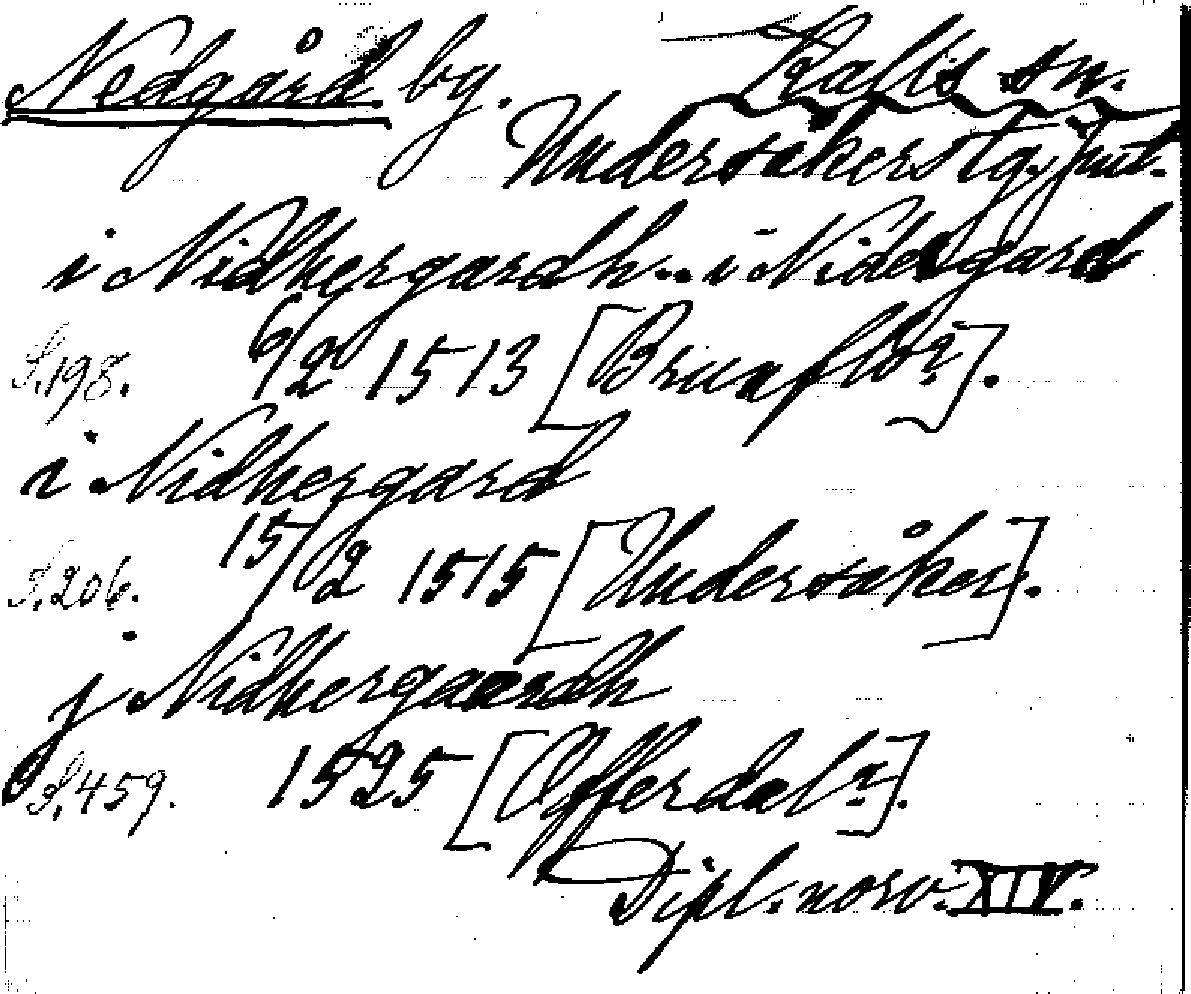 Nedgård by. Kalls sn.
Undersåkers tg. Jmt.
i Nidhergardh .. i Nidergard
S. 198. 6/2 1513 [Brunflo?].
i Nidhergard
S. 206. 15/2 1515 [Undersåker].
j Nidhergaardh
S. 459. 1525 [Offerdal?].
Dipl. norv. XIV.